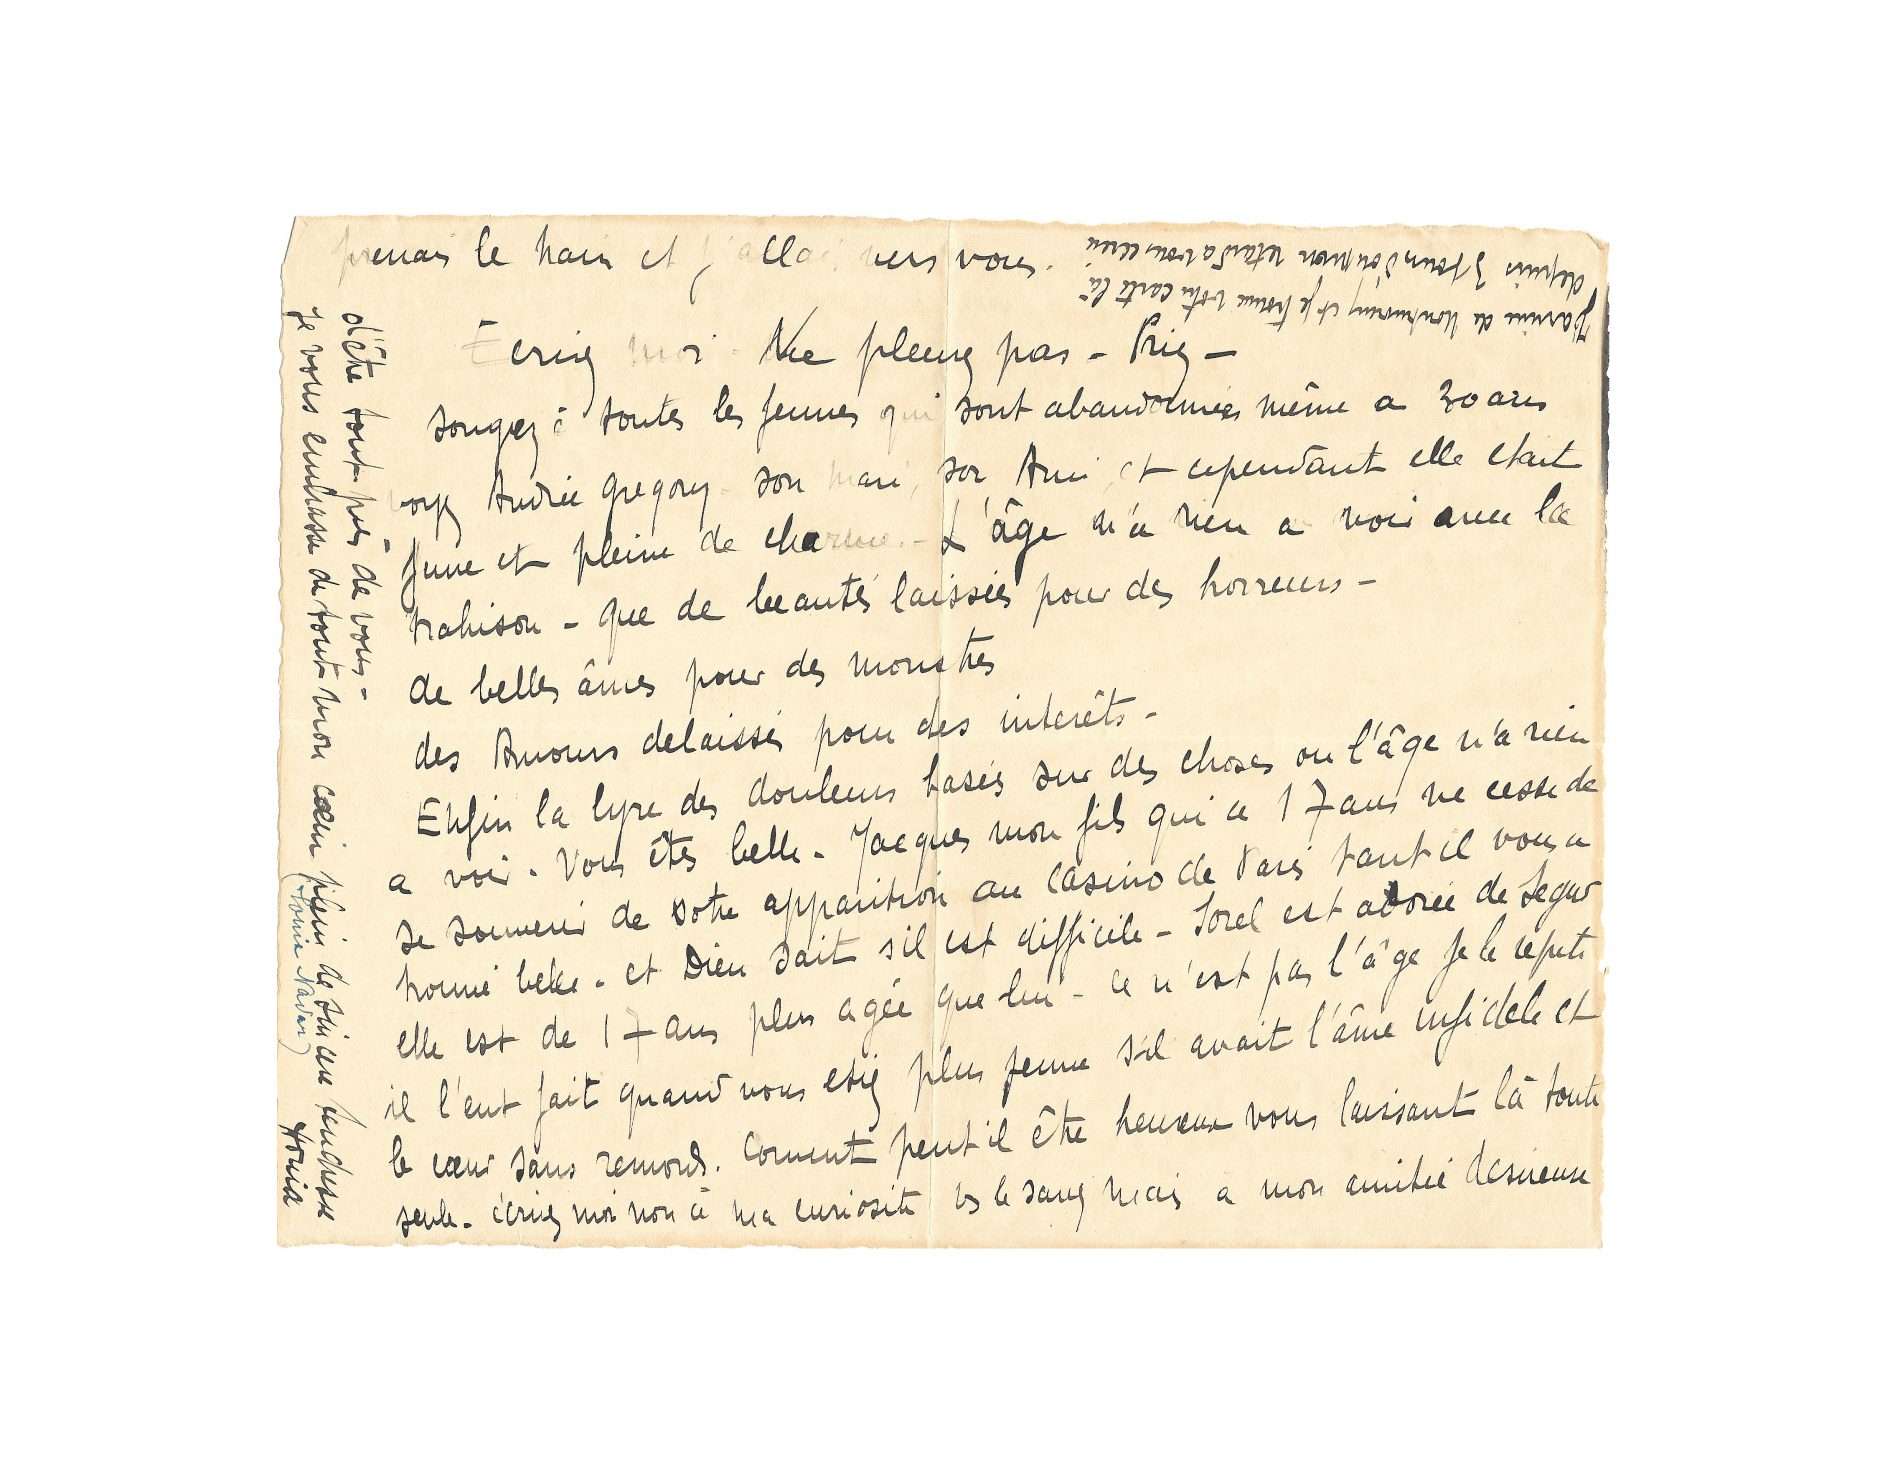 prenais le train et j'allais vers vous.
Ecrivez moi - Ne pleurez pas - Priez -
songez à toutes les femmes qui sont abandonnées même a 30 ans
voyez Andrée Gregory - son mari, son Ami, et cependant elle etait
jeune et pleine de charme. - L'âge n'a rien a voir avec la
trahison - que de beautés laissées pour des horreurs -
de belles âmes pour des monstres
des Amours delaissés pour des interêts -
Enfin la lyre des douleurs basées sur des choses ou l'âge n'a rien
a voir. Vous êtes belle - Jacques mon fils qui a 17 ans ne cesse de
se souvenir de votre apparition au Casino de Paris tant il vous a
trouvé belle. et Dieu sait s'il est difficile - Sorel est adorée de Segur
elle est de 17 ans plus agée que lui - ce n'est pas l'âge je le repete
il l'eut fait quand vous etiez plus jeune s'il avait l'âme infidele et
le cœur sans remords. Comment peut il être heureux vous laissant là toute
seule - écrivez moi non à ma curiosite vs le savez mais a mon amitié desireuse
d'être tout près de vous -
Je vous embrasse de tout mon cœur plein de sincere tendresse
Honia
(Honia Nadar)
J'arrive de Montmorency et je trouve votre carte là
depuis 3 jours d'où mon retard a vous ecrire